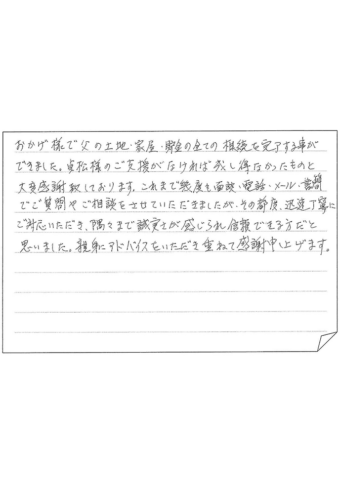 おかげ様で父の土地・家屋・貯金の全ての相続を完了する事が
できました。貞松様のご支援がなければ成し得なかったものと
大変感謝致しております。これまで幾度も面談・電話・メール・訪問
でご質問やご相談をさせていただきましたが、その都度、迅速丁寧に
ご対応いただき、隅々まで誠実さが感じられ信頼できる方だと
思いました。親身にアドバイスをいただき重ねて感謝申し上げます。